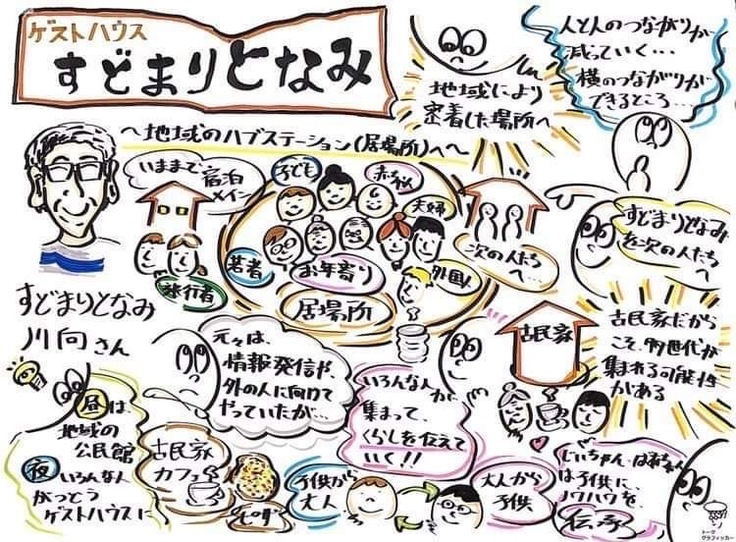 ゲストハウス
すどまりとなみ
〜地域のハブステーション(居場所)へ〜
地域により
密着した場所へ
人と人のつながりが
減っていく…
横のつながりが
できるところ…
いままで宿泊
メイン
旅行者
子ども
赤ちゃん
夫婦
若者
お年寄り
外国人
居場所
次の人たち
へ…
すどまりとなみ
を次の人たち
へ
すどまりとなみ
川向さん
元々は、
情報発信や、
外の人に向けて
やっていたが…
いろんな人が
集まって、
くらしを伝えて
いく!!
古民家
古民家だから
こそ、多世代が
集まれる可能性
がある
昼は、
地域の
公民館
夜 いろんな人
がつどう
ゲストハウスに
古民家
カフェ
ピザ
子供から
大人
大人から
子供
じいちゃん・ばあちゃん
は子供に、
ノウハウを、
伝承
トーク
グラフィッカー